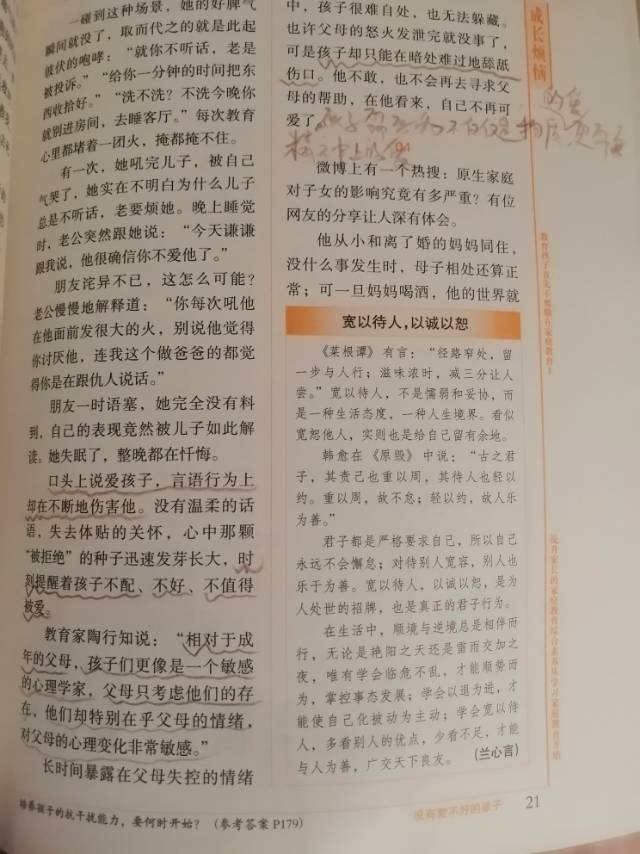 一碰到这种场景，她的好脾气
瞬间就没了，取而代之的就是此起
彼伏的咆哮：“就你不听话，老是
被投诉。”“给你一分钟的时间把东
西收拾好。”“洗不洗？不洗今晚你
就别进房间，去睡客厅。”每次教育
心里都堵着一团火，掩都掩不住。
有一次，她吼完儿子，被自己
气哭了，她实在不明白为什么儿子
总是不听话，老要烦她。晚上睡觉
时，老公突然跟她说：“今天谦谦
跟我说，他很确信你不爱他了。”
朋友诧异不已，这怎么可能？
老公慢慢地解释道：“你每次吼他
在他面前发很大的火，别说他觉得
你讨厌他，连我这个做爸爸的都觉
得你是在跟仇人说话。”
朋友一时语塞，她完全没有料
到，自己的表现竟然被儿子如此解
读。她失眠了，整晚都在忏悔。
口头上说爱孩子，言语行为上
却在不断地伤害他。没有温柔的话
语，失去体贴的关怀，心中那颗
“被拒绝”的种子迅速发芽长大，时
刻提醒着孩子不配、不好、不值得
被爱。
教育家陶行知说：“相对于成
年的父母，孩子们更像是一个敏感
的心理学家，父母只考虑他们的存
在，他们却特别在乎父母的情绪，
对父母的心理变化非常敏感。”
长时间暴露在父母失控的情绪
中，孩子很难自处，也无法躲藏。
也许父母的怒火发泄完就没事了，
可是孩子却只能在暗处难过地舔舐
伤口。他不敢，也不会再去寻求父
母的帮助，在他看来，自己不再可
爱了。
微博上有一个热搜：原生家庭
对子女的影响究竟有多严重？有位
网友的分享让人深有体会。
他从小和离了婚的妈妈同住，
没什么事发生时，母子相处还算正
常；可一旦妈妈喝酒，他的世界就
宽以待人，以诚以恕
《菜根谭》有言：“径路窄处，留
一步与人行；滋味浓时，减三分让人
尝。”宽以待人，不是懦弱和妥协，而
是一种生活态度，一种人生境界。看似
宽恕他人，实则也是给自己留有余地。
韩愈在《原毁》中说：“古之君
子，其责己也重以周，其待人也轻以
约。重以周，故不怠；轻以约，故人乐
为善。”
君子都是严格要求自己，所以自己
永远不会懈怠；对待别人宽容，别人也
乐于为善。宽以待人，以诚以恕，是为
人处世的招牌，也是真正的君子行为。
在生活中，顺境与逆境总是相伴而
行，无论是艳阳之天还是雷雨交加之
夜，唯有学会临危不乱，才能顺势而
为，掌控事态发展；学会以退为进，才
能使自己化被动为主动；学会宽以待
人，多看别人的优点，少看不足，才能
与人为善，广交天下良友。（兰心言）
成长烦恼
培养孩子的抗干扰能力，要何时开始？（参考答案P179）
没有教不好的孩子
21